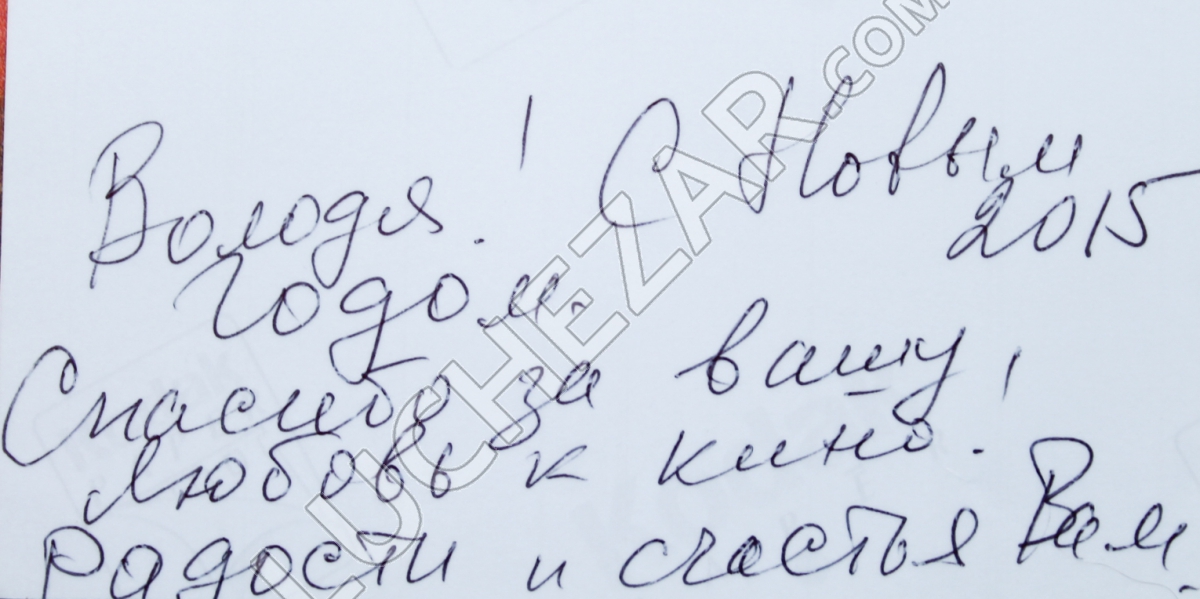 Володя! С Новым
2015
годом.
Спасибо за вашу
любовь к кино!
Радости и счастья Вам.
LUCHEZAR.COM